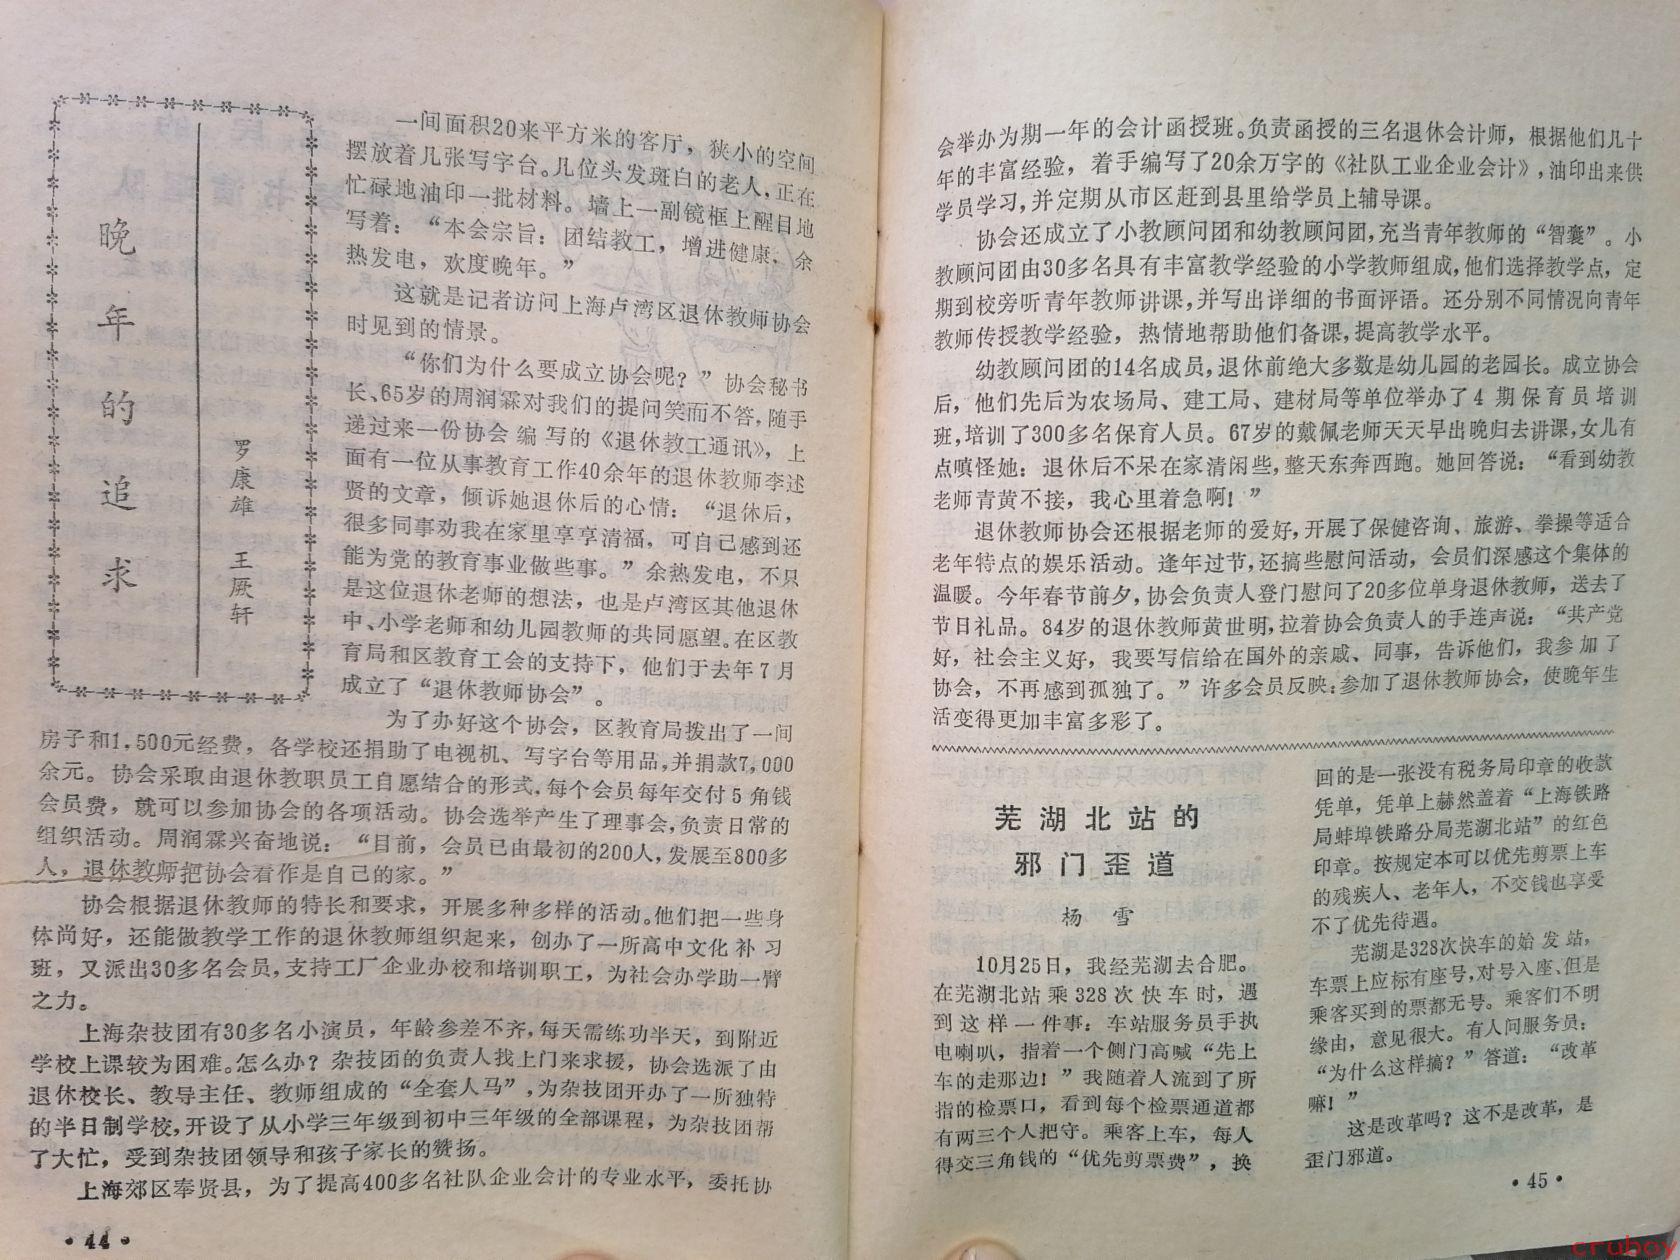 晚年的追求
罗康雄 王厥轩
一间面积20来平方米的客厅，狭小的空间
摆放着几张写字台。几位头发斑白的老人，正在
忙碌地油印一批材料。墙上一副镜框上醒目地
写着：“本会宗旨：团结教工，增进健康，余
热发电，欢度晚年。”
这就是记者访问上海卢湾区退休教师协会
时见到的情景。
“你们为什么要成立协会呢？”协会秘书
长、65岁的周润霖对我们的提问笑而不答，随手
递过来一份协会编写的《退休教工通讯》，上
面有一位从事教育工作40余年的退休教师李述
贤的文章，倾诉她退休后的心情：“退休后，
很多同事劝我在家里享享清福，可自己感到还
能为党的教育事业做些事。”余热发电，不只
是这位退休老师的想法，也是卢湾区其他退休
中、小学老师和幼儿园教师的共同愿望。在区教
育局和区教育工会的支持下，他们于去年7月
成立了“退休教师协会”。
为了办好这个协会，区教育局拨出了一间
房子和1,500元经费，各学校还捐助了电视机、写字台等用品，并捐款7,000
余元。协会采取由退休教职员工自愿结合的形式，每个会员每年交付5角钱
会员费，就可以参加协会的各项活动。协会选举产生了理事会，负责日常的
组织活动。周润霖兴奋地说：“目前，会员已由最初的200人，发展至800多
人，退休教师把协会看作是自己的家。”
协会根据退休教师的特长和要求，开展多种多样的活动。他们把一些身
体尚好，还能做教学工作的退休教师组织起来，创办了一所高中文化补习
班，又派出30多名会员，支持工厂企业办校和培训职工，为社会办学助一臂
之力。
上海杂技团有30多名小演员，年龄参差不齐，每天需练功半天，到附近
学校上课较为困难。怎么办？杂技团的负责人找上门来求援，协会选派了由
退休校长、教导主任、教师组成的“全套人马”，为杂技团开办了一所独特
的半日制学校，开设了从小学三年级到初中三年级的全部课程，为杂技团帮
了大忙，受到杂技团领导和孩子家长的赞扬。
上海郊区奉贤县，为了提高400多名社队企业会计的专业水平，委托协
·44·
会举办为期一年的会计函授班。负责函授的三名退休会计师，根据他们几十
年的丰富经验，着手编写了20余万字的《社队工业企业会计》，油印出来供
学员学习，并定期从市区赶到县里给学员上辅导课。
协会还成立了小教顾问团和幼教顾问团，充当青年教师的“智囊”。小
教顾问团由30多名具有丰富教学经验的小学教师组成，他们选择教学点，定
期到校旁听青年教师讲课，并写出详细的书面评语。还分别不同情况向青年
教师传授教学经验，热情地帮助他们备课，提高教学水平。
幼教顾问团的14名成员，退休前绝大多数是幼儿园的老园长。成立协会
后，他们先后为农场局、建工局、建材局等单位举办了4期保育员培训
班，培训了300多名保育人员。67岁的戴佩老师天天早出晚归去讲课，女儿有
点嗔怪她：退休后不呆在家清闲些，整天东奔西跑。她回答说：“看到幼教
老师青黄不接，我心里着急啊！”
退休教师协会还根据老师的爱好，开展了保健咨询、旅游、拳操等适合
老年特点的娱乐活动。逢年过节，还搞些慰问活动，会员们深感这个集体的
温暖。今年春节前夕，协会负责人登门慰问了20多位单身退休教师，送去了
节日礼品。84岁的退休教师黄世明，拉着协会负责人的手连声说：“共产党
好，社会主义好，我要写信给在国外的亲戚、同事，告诉他们，我参加了
协会，不再感到孤独了。”许多会员反映：参加了退休教师协会，使晚年生
活变得更加丰富多彩了。
芜湖北站的
邪门歪道
杨雪
10月25日，我经芜湖去合肥。
在芜湖北站乘328次快车时，遇
到这样一件事：车站服务员手执
电喇叭，指着一个侧门高喊“先上
车的走那边！”我随着人流到了所
指的检票口，看到每个检票通道都
有两三个人把守。乘客上车，每人
得交三角钱的“优先剪票费”，换
回的是一张没有税务局印章的收款
凭单，凭单上赫然盖着“上海铁路
局蚌埠铁路分局芜湖北站”的红色
印章。按规定本可以优先剪票上车
的残疾人、老年人，不交钱也享受
不了优先待遇。
芜湖是328次快车的始发站，
车票上应标有座号，对号入座、但是
乘客买到的票都无号。乘客们不明
缘由，意见很大。有人问服务员：
“为什么这样搞？”答道：“改革
嘛！”
这是改革吗？这不是改革，是
歪门邪道。
·45·
cruboy